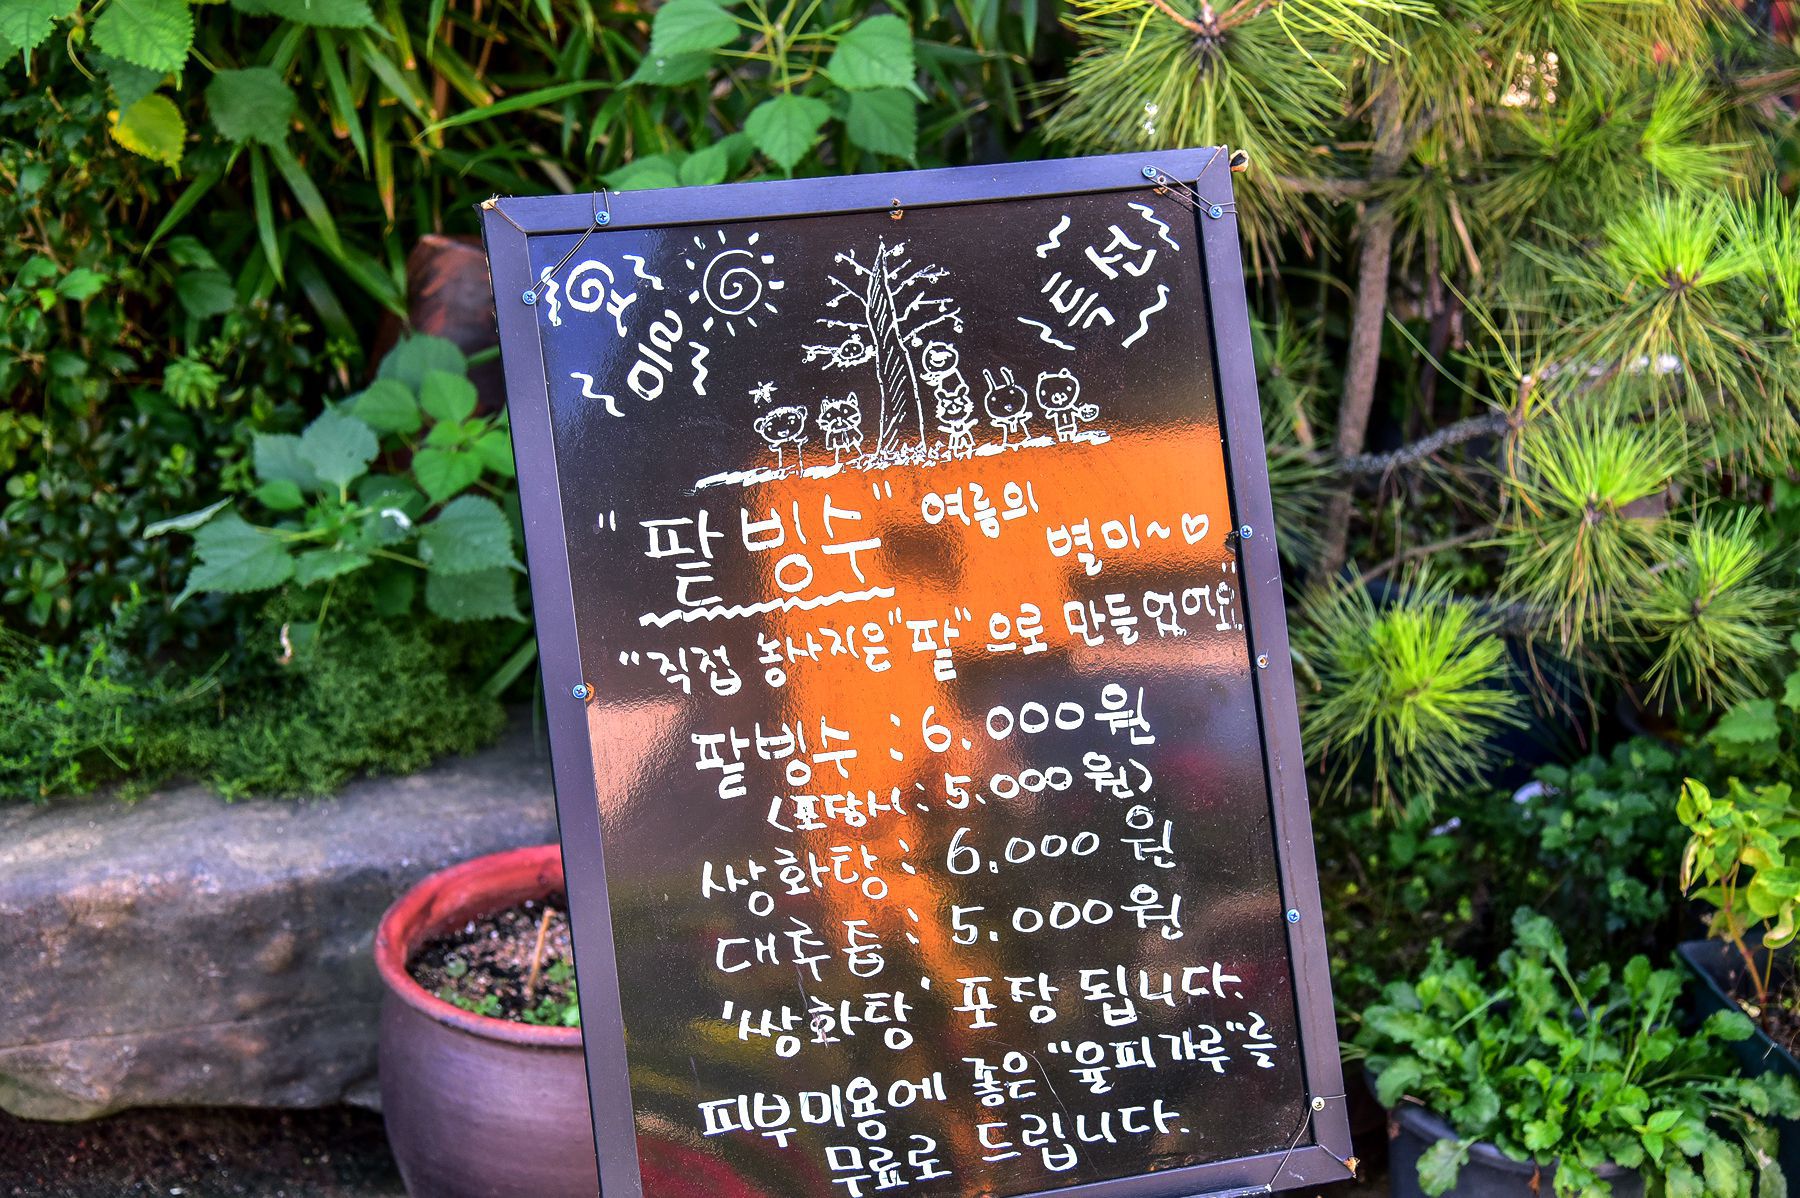 야미
특선
"팥빙수" 여름의
별미~♡
"직접 농사지은 "팥"으로 만들었어요"
팥빙수 : 6.000원
<포장시 : 5.000원>
쌍화탕 : 6.000원
대루툼 : 5.000원
'쌍화탕' 포장 됩니다.
피부미용에 좋은 "율피가루"를
무료로 드립니다.